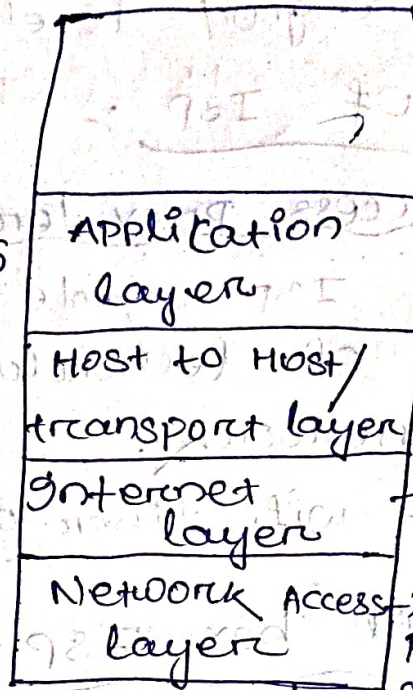 Application
layer
Host to Host/
transport layer
Internet
layer
Network Access
layer